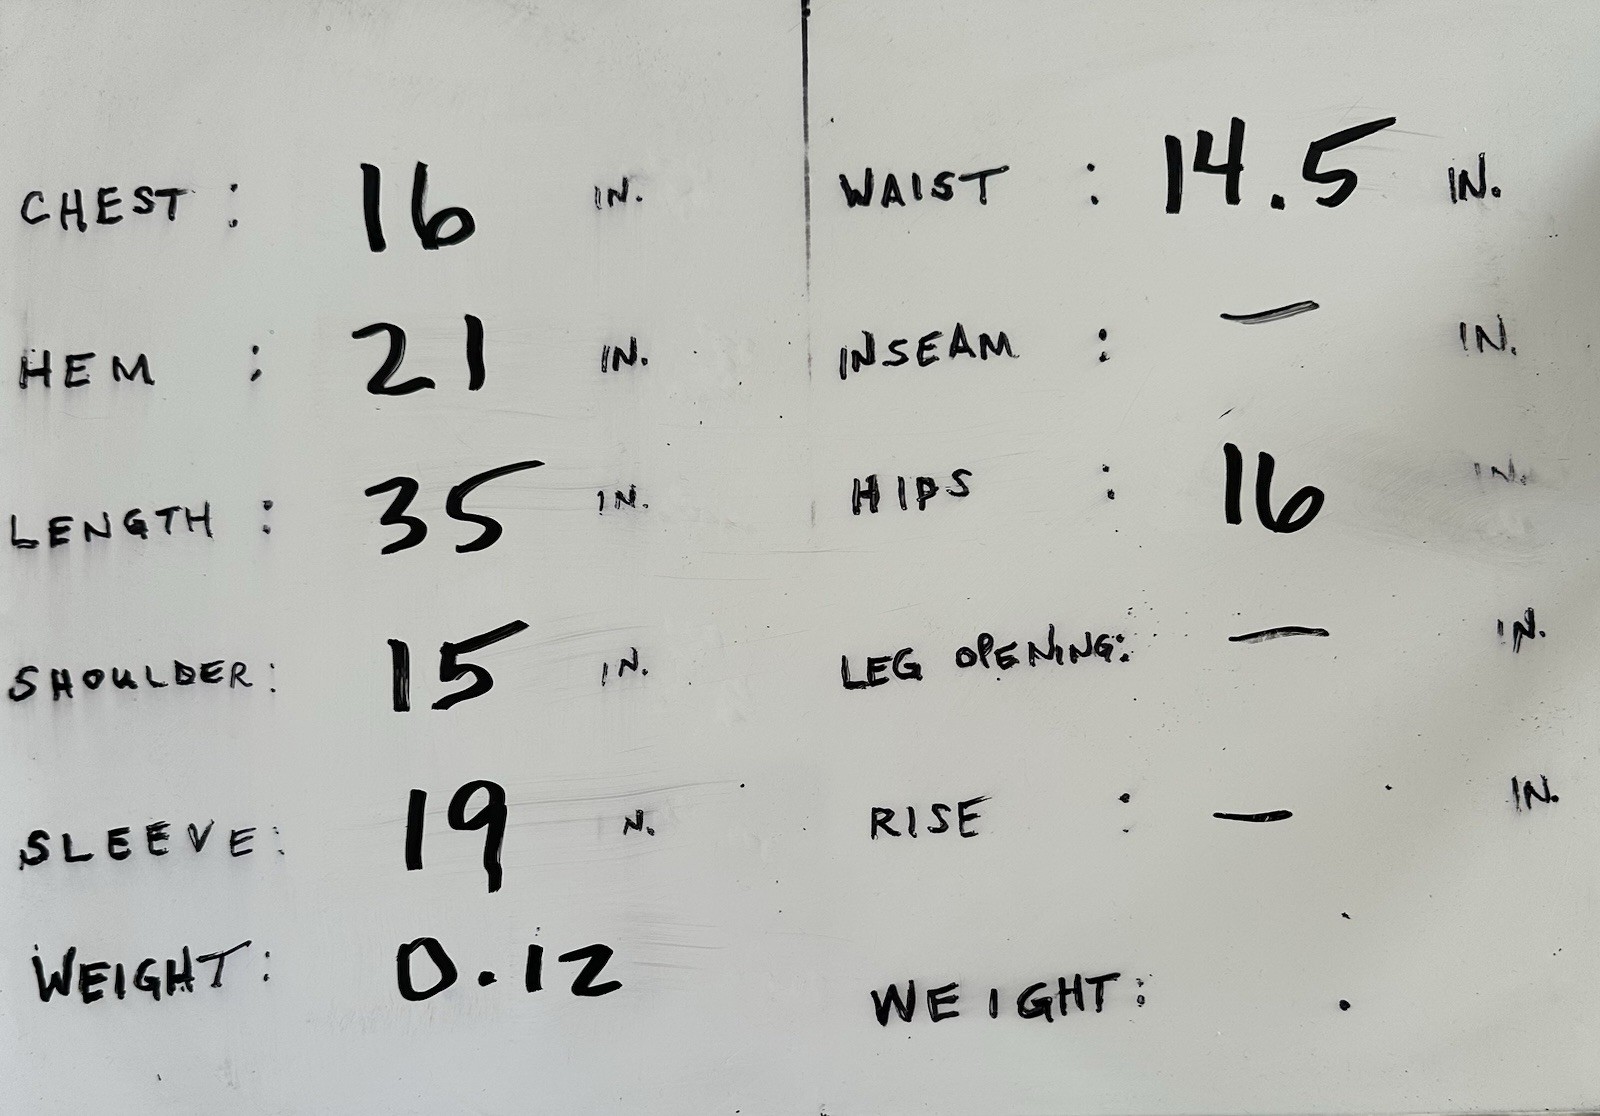 CHEST: 16 IN.
HEM : 21 IN.
LENGTH : 35 IN.
SHOULDER: 15 IN.
SLEEVE: 19 N.
WEIGHT: 0.12
WAIST : 14.5 IN.
INSEAM : — IN.
HIPS : 16 IN.
LEG OPENING: — IN.
RISE : — IN.
WEIGHT: .